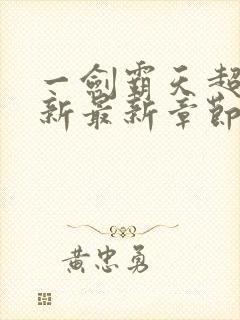 一剑霸天超
新最新章節
黄忠勇